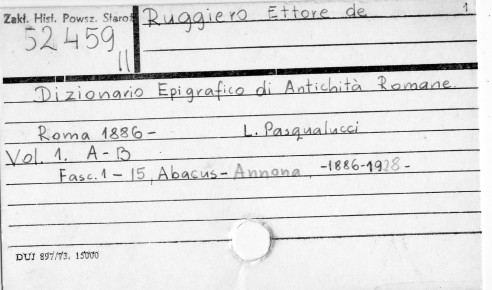 Zakł. Hist. Powsz. Staroż
52459
II
Ruggiero Ettore de
1
Dizionario Epigrafico di Antichità Romane.
Roma 1886 - L. Pasqualucci
Vol. 1. A - B
Fasc. 1 - 15, Abacus - Annona, -1886-1928-
DUJ 897/73. 15000